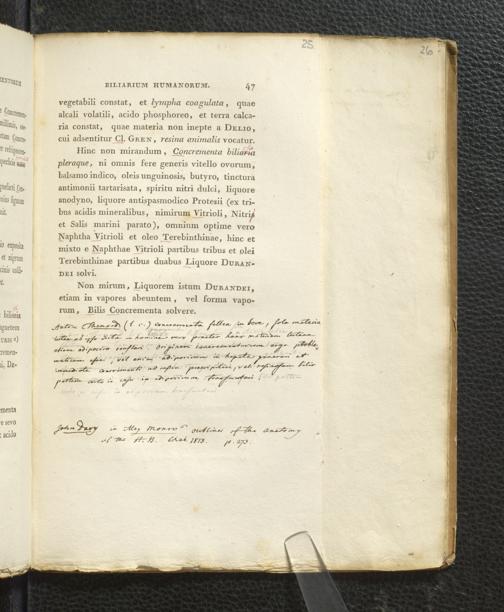 25
26
BILIARIUM HUMANORUM. 47
vegetabili constat, et lympha coagulata, quae
alcali volatili, acido phosphoreo, et terra calca-
ria constat, quae materia non inepte a DELIO,
cui adsentitur Cl. GREN, resina animalis vocatur.
Hinc non mirandum, Concrementa biliaria
pleraque, ni omnis fere generis vitello ovorum,
balsamo indico, oleis unguinosis, butyro, tinctura
antimonii tartarisata, spiritu nitri dulci, liquore
anodyno, liquore antispasmodico Protesii (ex tri-
bus acidis mineralibus, nimirum Vitrioli, Nitri
et Salis marini parato), omnium optime vero
Naphtha Vitrioli et oleo Terebinthinae, hinc et
mixto e Naphthae Vitrioli partibus tribus et olei
Terebinthinae partibus duabus Liquore DURAN-
DEI solvi.
Non mirum, Liquorem istum DURANDEI,
etiam in vapores abeuntem, vel forma vapo-
rum, Bilis Concrementa solvere.
Autor Thenard (l. c.) concrementa fellea in bove, sola materia
lutea
in homine vero praeter hanc materiam luteam
etiam adipocira
originem
vel enim adipocirum in hepate generari et
vel
bilis
in adipocirum
John Davy in Alex. Monro outlines of the anatomy
of the H. B. 1813. p. 273.